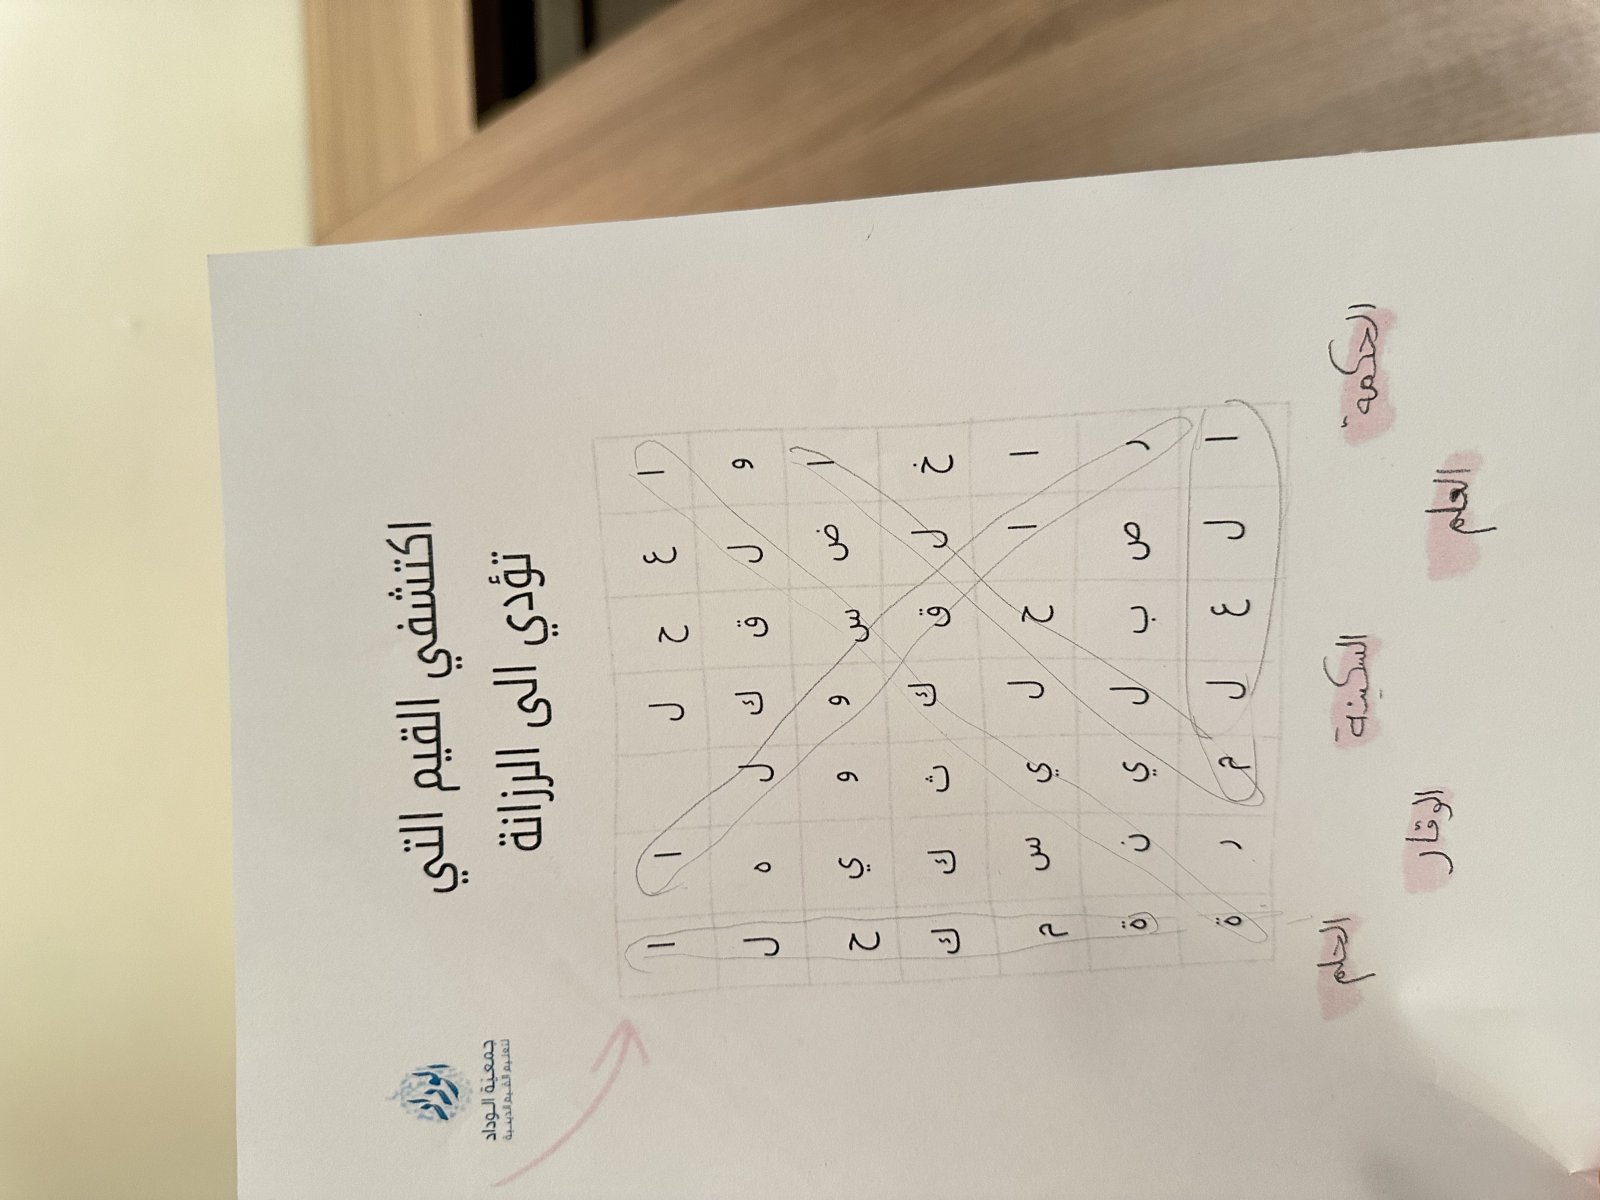 اكتشفي القيم التي
تؤدي الى الرزانة
الوداد
جمعية الوداد
ا ع ح ل ا ا
و ل ق ك ل ه ل
ا ض س و و ي ح
خ ل ق ك ث ك ك
ا ا ح ل ي س م
ر ص ب ل ي ن ة
ا ل ع ل م ر ة
الحكمة السكينة الحلم
العلم الوقار